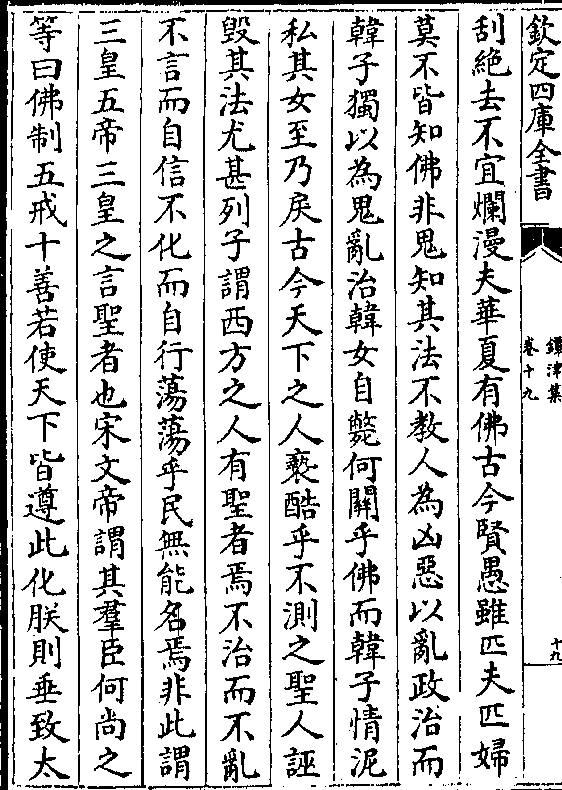 欽定四庫全書
鐔津集
卷十九
十九
刮絶去不宜爛漫夫華夏有佛古今賢愚雖匹夫匹婦
莫不皆知佛非鬼知其法不教人為凶惡以亂政治而
韓子獨以為鬼亂治韓女自斃何關乎佛而韓子情泥
私其女至乃戾古今天下之人褻酷乎不測之聖人誣
毀其法尤甚列子謂西方之人有聖者焉不治而不亂
不言而自信不化而自行蕩蕩乎民無能名焉非此謂
三皇五帝三皇之言聖者也宋文帝謂其羣臣何尚之
等曰佛制五戒十善若使天下皆遵此化朕則垂致太